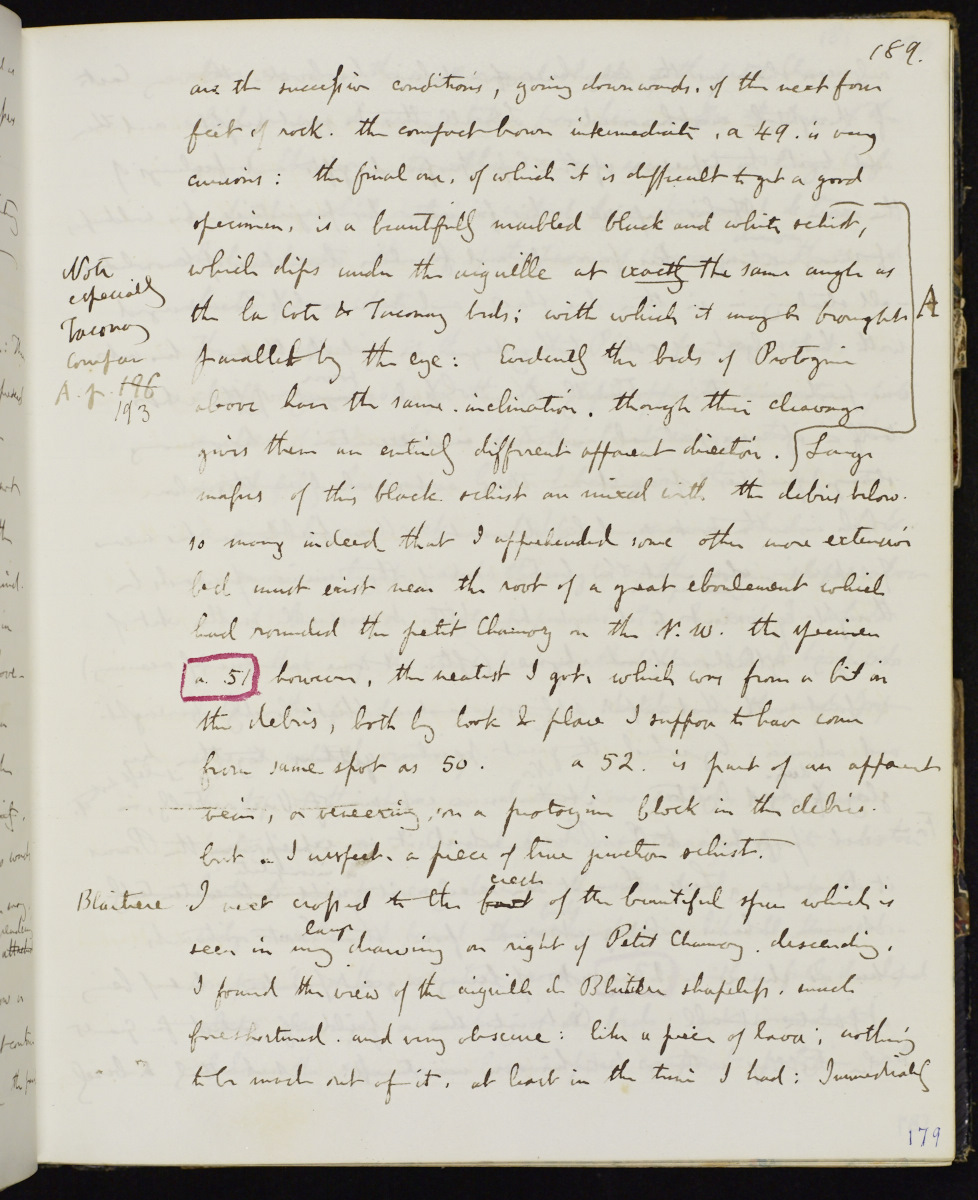 189.
are the successive conditions, going downwards, of the next four
feet of rock. the compact brown intermediate, a 49. is very
curious: the final one, of which it is difficult to get a good
specimen, is a beautifully marbled black and white schist,
which dips under the aiguille at exactly the same angle as
the la Cote & Taconay beds; with which it may be brought
parallel by the eye: Evidently the beds of Protogine
above have the same inclination, though their cleavage
gives them an entirely different apparent direction. Large
masses of this black schist are mixed with the debris below.
so many indeed that I apprehended some other more extensive
bed must exist near the root of a great eboulement which
had rounded the petit Charmoz on the N.W. the specimen
a. 51 however, the neatest I got, which was from a bit in
the debris, both by look & place I suppose to have come
from same spot as 50. a 52. is part of an apparent
vein, or veneering, on a protogine block in the debris.
but as I suspect, a piece of true junction schist.
Note
especially
Taconay
compare
A. p. 196
193
A
Blaitiere I next crossed to the foot crest of the beautiful spur which is
seen in my large drawing on right of Petit Charmoz, descending.
I found the view of the aiguille de Blaitiere shapeless, much
foreshortened. and very obscure: like a piece of lava; nothing
to be made out of it, at least in the time I had: Immediately
179